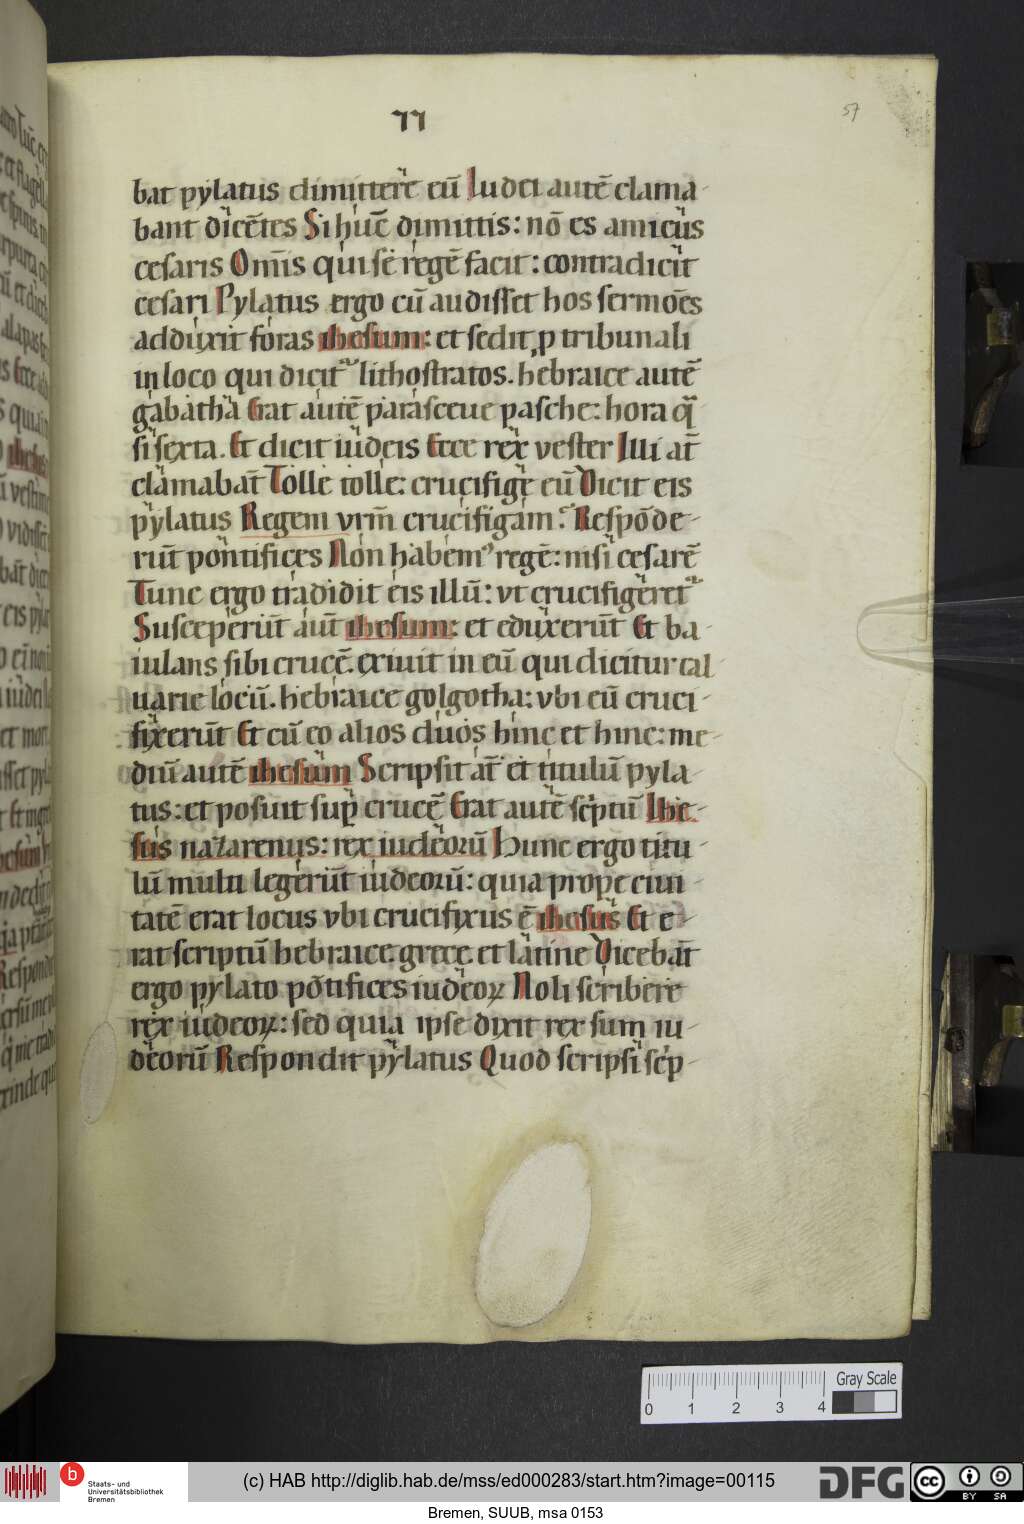 77
57
bat pylatus dimittere eū Iudei autē clama
bant dicētes Si hūc dimittis: nō es amicus
cesaris Om̄is qui se regē facit: contradicit
cesari Pylatus ergo cū audisset hos sermōes
adduxit foras ihesum: et sedit ꝓ tribunali
in loco qui dicit᷑ lithostratos. hebraice autē
gabatha Erat autē parasceue pasche: hora q̄
si sexta. Et dicit iudeis Ecce rex vester Illi at̄
clamabāt Tolle tolle: crucifige eū Dicit eis
pylatus Regem vrm̄ crucifigam? Respōde
rūt pontifices Non habemꝰ regē: nisi cesarē
Tunc ergo tradidit eis illū: vt crucifigeret᷑
Susceperūt aūt ihesum: et eduxerūt Et ba
iulans sibi crucē. exiuit in eū qui dicitur cal
uarie locū. hebraice golgotha: vbi eū cruci
fixerūt Et cū eo alios duos hinc et hinc: me
diū autē ihesum Scripsit at̄ et titulū pyla
tus: et posuit sup̱ crucē Erat autē sc̄ptū Ihe
sus nazarenus: rex iudeorū Hunc ergo titu
lū multi legerūt iudeorū: quia prope ciui
tatē erat locus vbi crucifixus ē ihesus Et e
rat scriptū hebraice. grece. et latine Dicebāt
ergo pylato pōtifices iudeoꝝ Noli scribere
rex iudeoꝝ: sed quia ipse dixit rex sum iu
deorū Respondit pylatus Quod scripsi sc̄p
Gray Scale
0 1 2 3 4
b
Staats- und
Universitätsbibliothek
Bremen
(c) HAB http://diglib.hab.de/mss/ed000283/start.htm?image=00115
DFG
cc BY SA
Bremen, SUUB, msa 0153